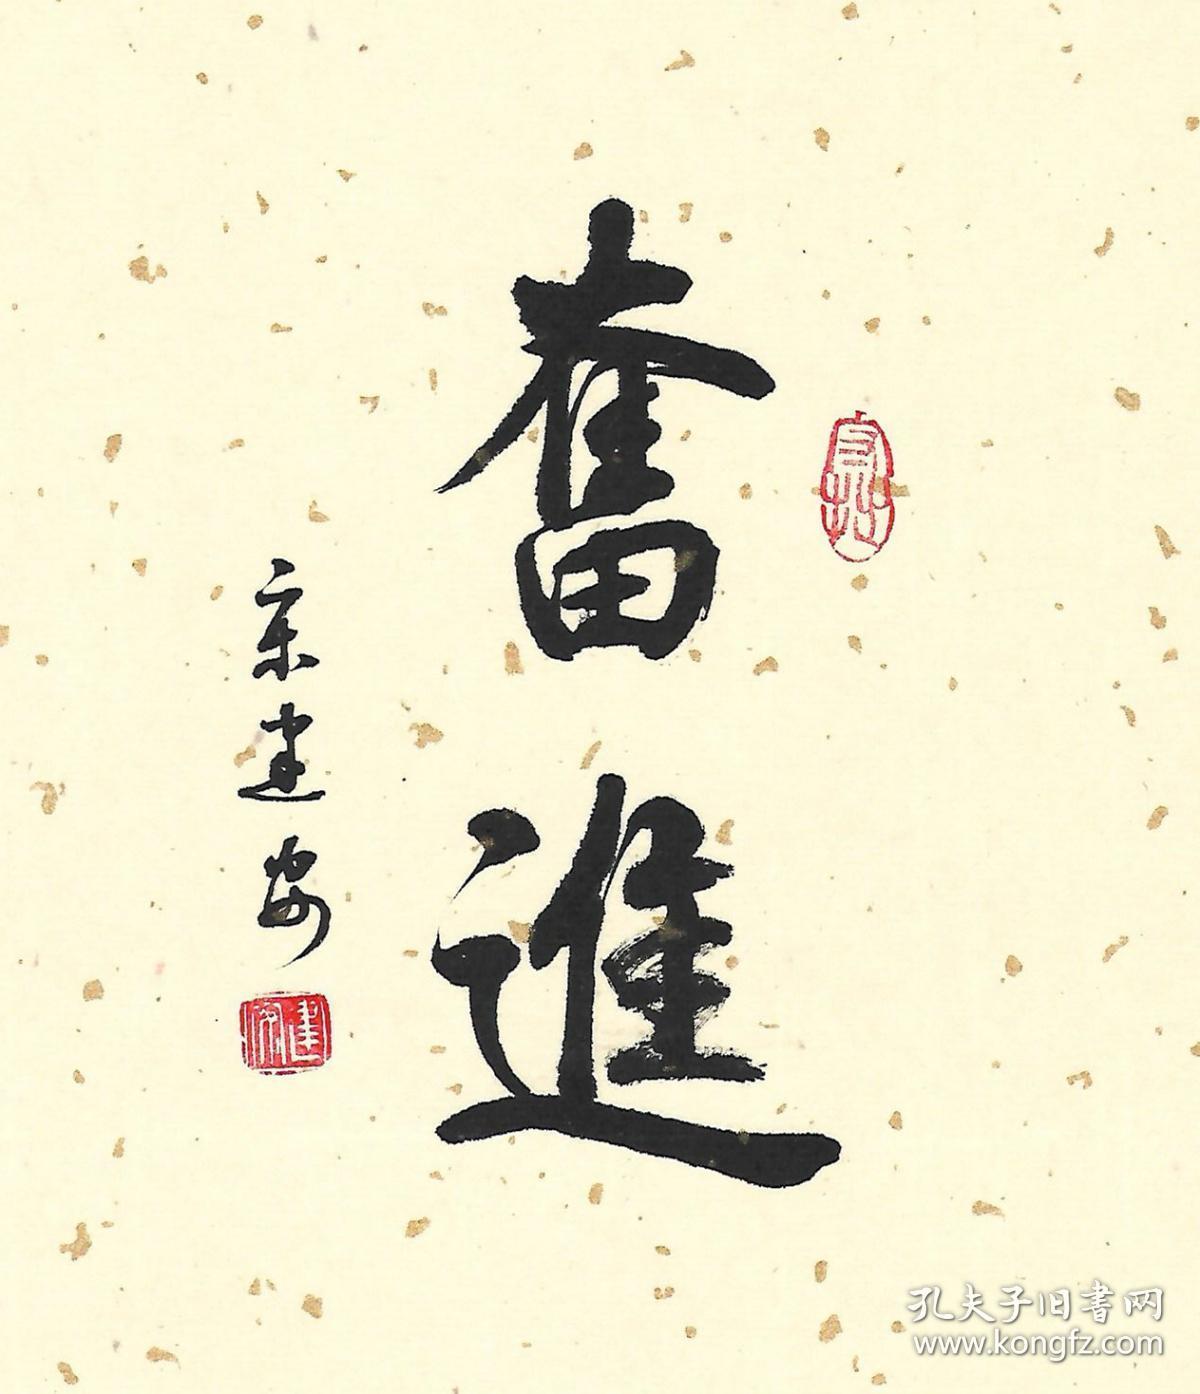 奮進
宋建安
建安
孔夫子旧書网
www.kongfz.com